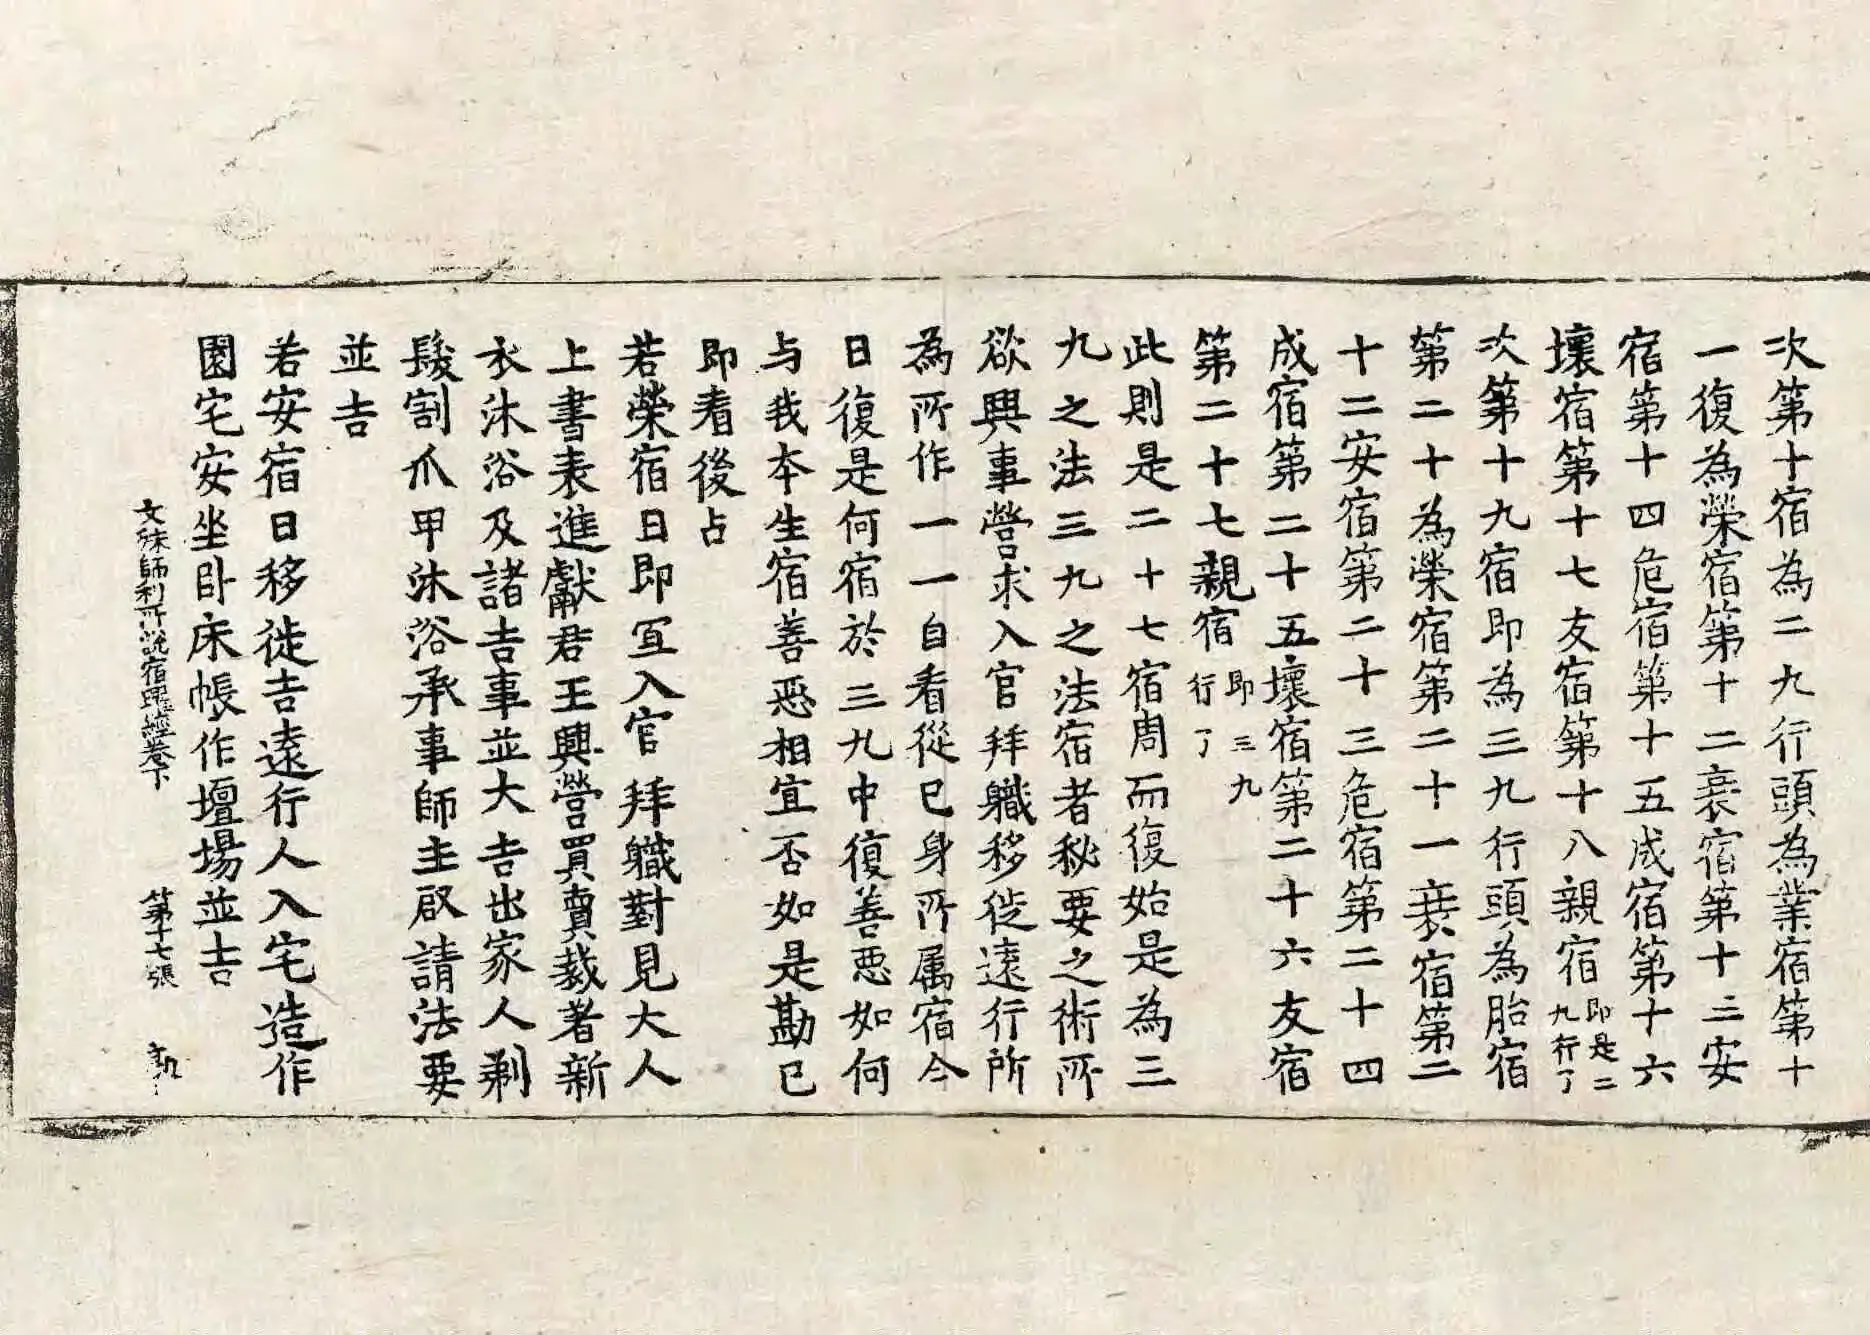 次第十宿為二九行頭為業宿第十
一復為榮宿第十二衰宿第十三安
宿第十四危宿第十五成宿第十六
壞宿第十七友宿第十八親宿即是二九行了
次第十九宿即為三九行頭為胎宿
第二十為榮宿第二十一衰宿第二
十二安宿第二十三危宿第二十四
成宿第二十五壞宿第二十六友宿
第二十七親宿即三九行了
此則是二十七宿周而復始是為三
九之法三九之法宿者秘要之術所
欲興事營求入官拜職移徙遠行所
為所作一一自看從己身所属宿今
日復是何宿於三九中復善惡如何
与我本生宿善惡相宜否如是勘已
即看後占
若榮宿日即冝入官拜職對見大人
上書表進獻君王興營買賣裁著新
衣沐浴及諸吉事並大吉出家人剃
髮割爪甲沐浴承事師主啟請法要
並吉
若安宿日移徙吉遠行人入宅造作
園宅安坐卧床帳作壇場並吉
文殊師利所說宿曜經卷下 第十七張